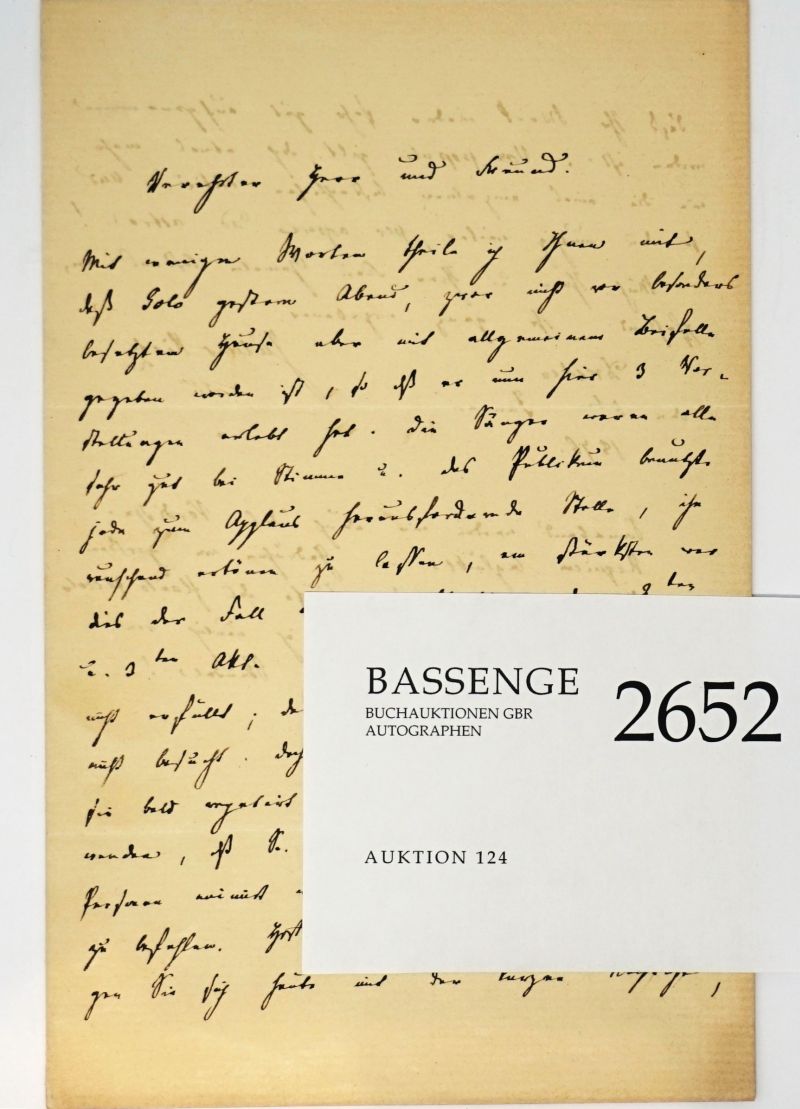 Verehrter Herr und Freund.
Mit wenigen Worten theile ich Ihnen mit,
daß Golo gestern Abend, zwar nicht vor besonders
besetztem Hause aber mit allgemeinem Beifalle
gegeben worden ist, so daß er nun hier 3 Vor-
stellungen erlebt hat. Die Sänger waren alle
sehr gut bei Stimme u. das Publikum benutzte
jede zum Applaus herausfordernde Stelle, ihn
rauschend ertönen zu lassen, am stärksten war
dies der Fall ten
u. 3ten Akt.
nicht erfüllt; da
nicht besucht. Doch
sie bald repetirt
werden, daß S.
Personen nimmt
zu befehlen.
gen Sie sich heute mit der kurzen
BASSENGE
BUCHAUKTIONEN GBR
AUTOGRAPHEN
2652
AUKTION 124